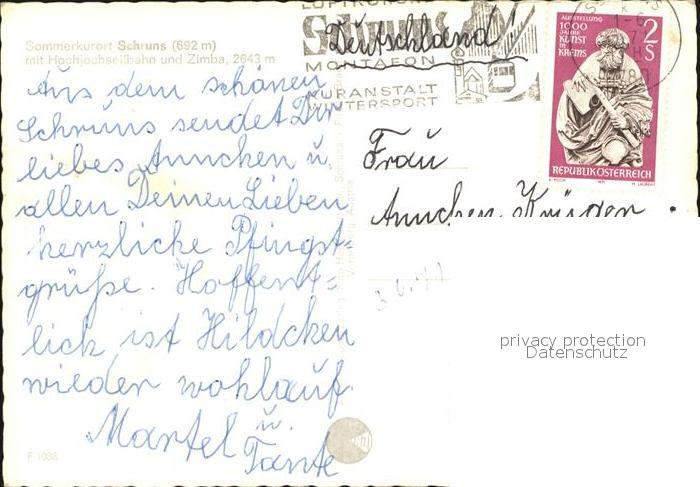 Sommerkurort Schruns (692 m)
mit Hochjochseilbahn und Zimba, 2643 m
Aus dem schönen
Schruns sendet Dir
liebes Annchen u.
allen Deinen Lieben
herzliche Pfingst=
grüße. Hoffent=
lich ist Hildchen
wieder wohlauf.
Martel u.
Tante
F 1038
LUFTKURORT
Schruns
MONTAFON
KURANSTALT
WINTERSPORT
Deutschland!
AUSSTELLUNG
1000
JAHRE
KUNST
IN
KREMS
2
S
REPUBLIK ÖSTERREICH
1971
Frau
Annchen
3.6.71
privacy protection
Datenschutz